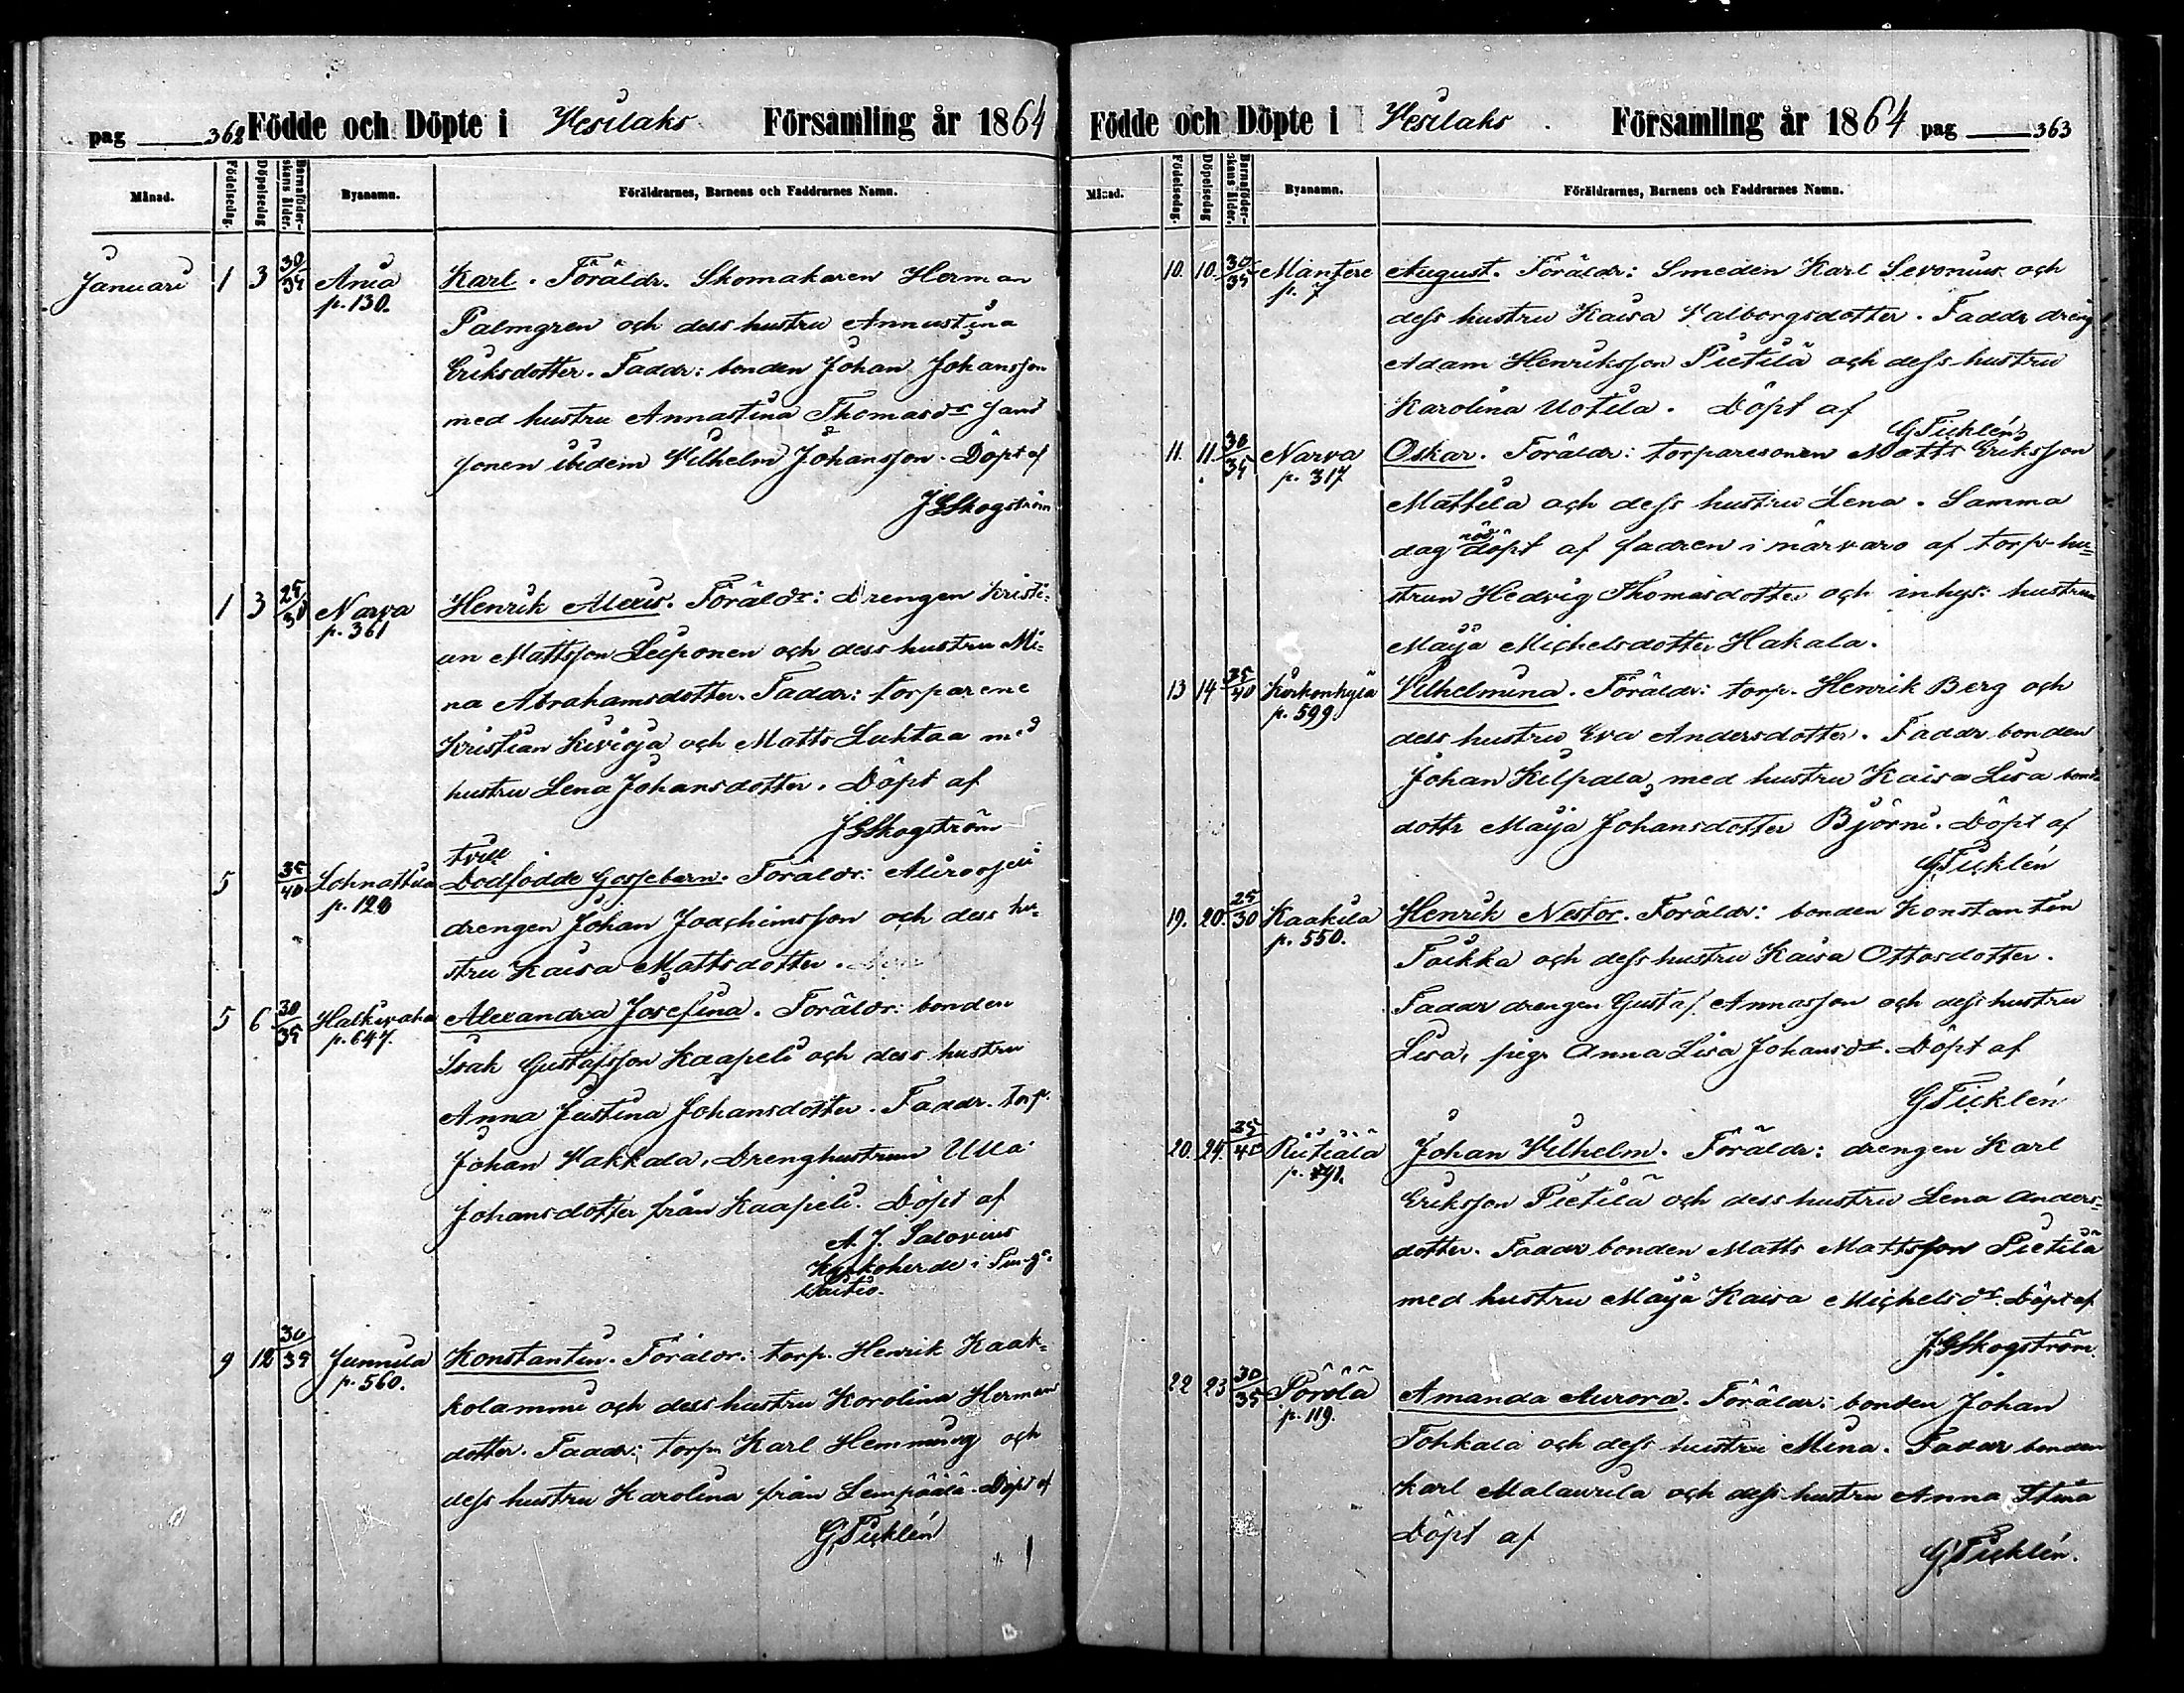 pag 362 Födde och Döpte i Vesilaks Församling år 1864
Månad. Födelsedag. Döpelsedag Barnaföderskans ålder. Byanamn. Föräldrarnes, Barnens och Faddrarnes Namn.
Januari 1 3 30/35 Ania Karl. Föräldr. Skomakaren Herman
p. 130. Palmgren och dess hustru Annastina
Eriksdotter. Faddr: bonden Johan Johansson
med hustru Annastina Thomasdr samt
sonen ibidem Vilhelm Johansson. Döpt af
JGSkogström
1 3 25/30 Narva Henrik Alexis. Föräldr: Drengen Kristi-
p. 361 an Mattsson Leiponen och dess hustru Mi-
na Abrahamsdotter. Faddr: torparene
Kristian Kivioja och Matts Luhtaa med
hustru Lena Johansdotter. Döpt af
JGSkogström
tvill
5 35/40 Dödfödde Gossebarn. Föräldr:
p. 120 drengen Johan Joachimsson och dess hu-
stru Kaisa Mattsdotter.
5 6 30/35 Halkivaha Alexandra Josefina. Föräldr: bonden
p. 647. Isak Gustafsson Kaapeli och dess hustru
Anna Justina Johansdotter. Faddr. torp.
Johan Hakkala, Drenghustrun Ulla
Johansdotter från Kaapeli. Döpt af
A. J. Salovius
Kyrkoherde i Punga-
laitio.
9 12 30/35 Junnila Konstantin. Föräldr: torp. Henrik Kaak-
p. 560. kolammi och dess hustru Karolina Herman
dotter. Faddr: torp Karl Hemming och
dess hustru Karolina från Lempäälä. Döpt af
GTicklén
Födde och Döpte i Vesilaks Församling år 1864 pag 363
Månad. Födelsedag. Döpelsedag Barnaföderskans ålder. Byanamn. Föräldrarnes, Barnens och Faddrarnes Namn.
10. 10. 30/35 Mantere August. Föräldr: Smeden Karl Sevonius och
p. 7 dess hustru Kaisa Valborgsdotter. Faddr dreng
Adam Henriksson Pietilä och dess hustru
Karolina Uotila. Döpt af
GTicklén
11. 11. 30/35 Narva Oskar. Föräldr: torparesonen Matts Eriksson
p. 317 Mattila och dess hustru Lena. Samma
dag nöddöpt af fadren i närvaro af torp-hu-
strun Hedvig Thomasdotter och inhys: hustrun
Maija Michelsdotter Hakala.
13 14 35/40 Korkenkylä Vilhelmina. Föräldr: torp. Henrik Berg och
p. 599 dess hustru Eva Andersdotter. Faddr bonden
Johan Kilpala, med hustru Kaisa Lisa bonde
dottr Maija Johansdotter Björni. Döpt af
GTicklén
19. 20. 25/30 Kaakila Henrik Nestor. Föräldr: bonden Konstantin
p. 550. Toikka och dess hustru Kaisa Ottosdotter.
Faddr drengen Gustaf Annasson och dess hustru
Lisa, pigr Anna Lisa Johansdr. Döpt af
GTicklén
20. 24. 35/40 Riitiälä Johan Vilhelm. Föräldr: drengen Karl
Eriksson Pietilä och dess hustru Lena Anders-
dotter. Faddr bonden Matts Mattsson Pietilä
med hustru Maija Kaisa Michelsdr. Döpt af
JGSkogström.
22 23 30/35 Pörölä Amanda Aurora. Föräldr: bonden Johan
p. 119. Tohkala och dess hustru Mina. Faddr bonden
Karl Malaurila och dess hustru Anna Stina
Döpt af
GTicklén.